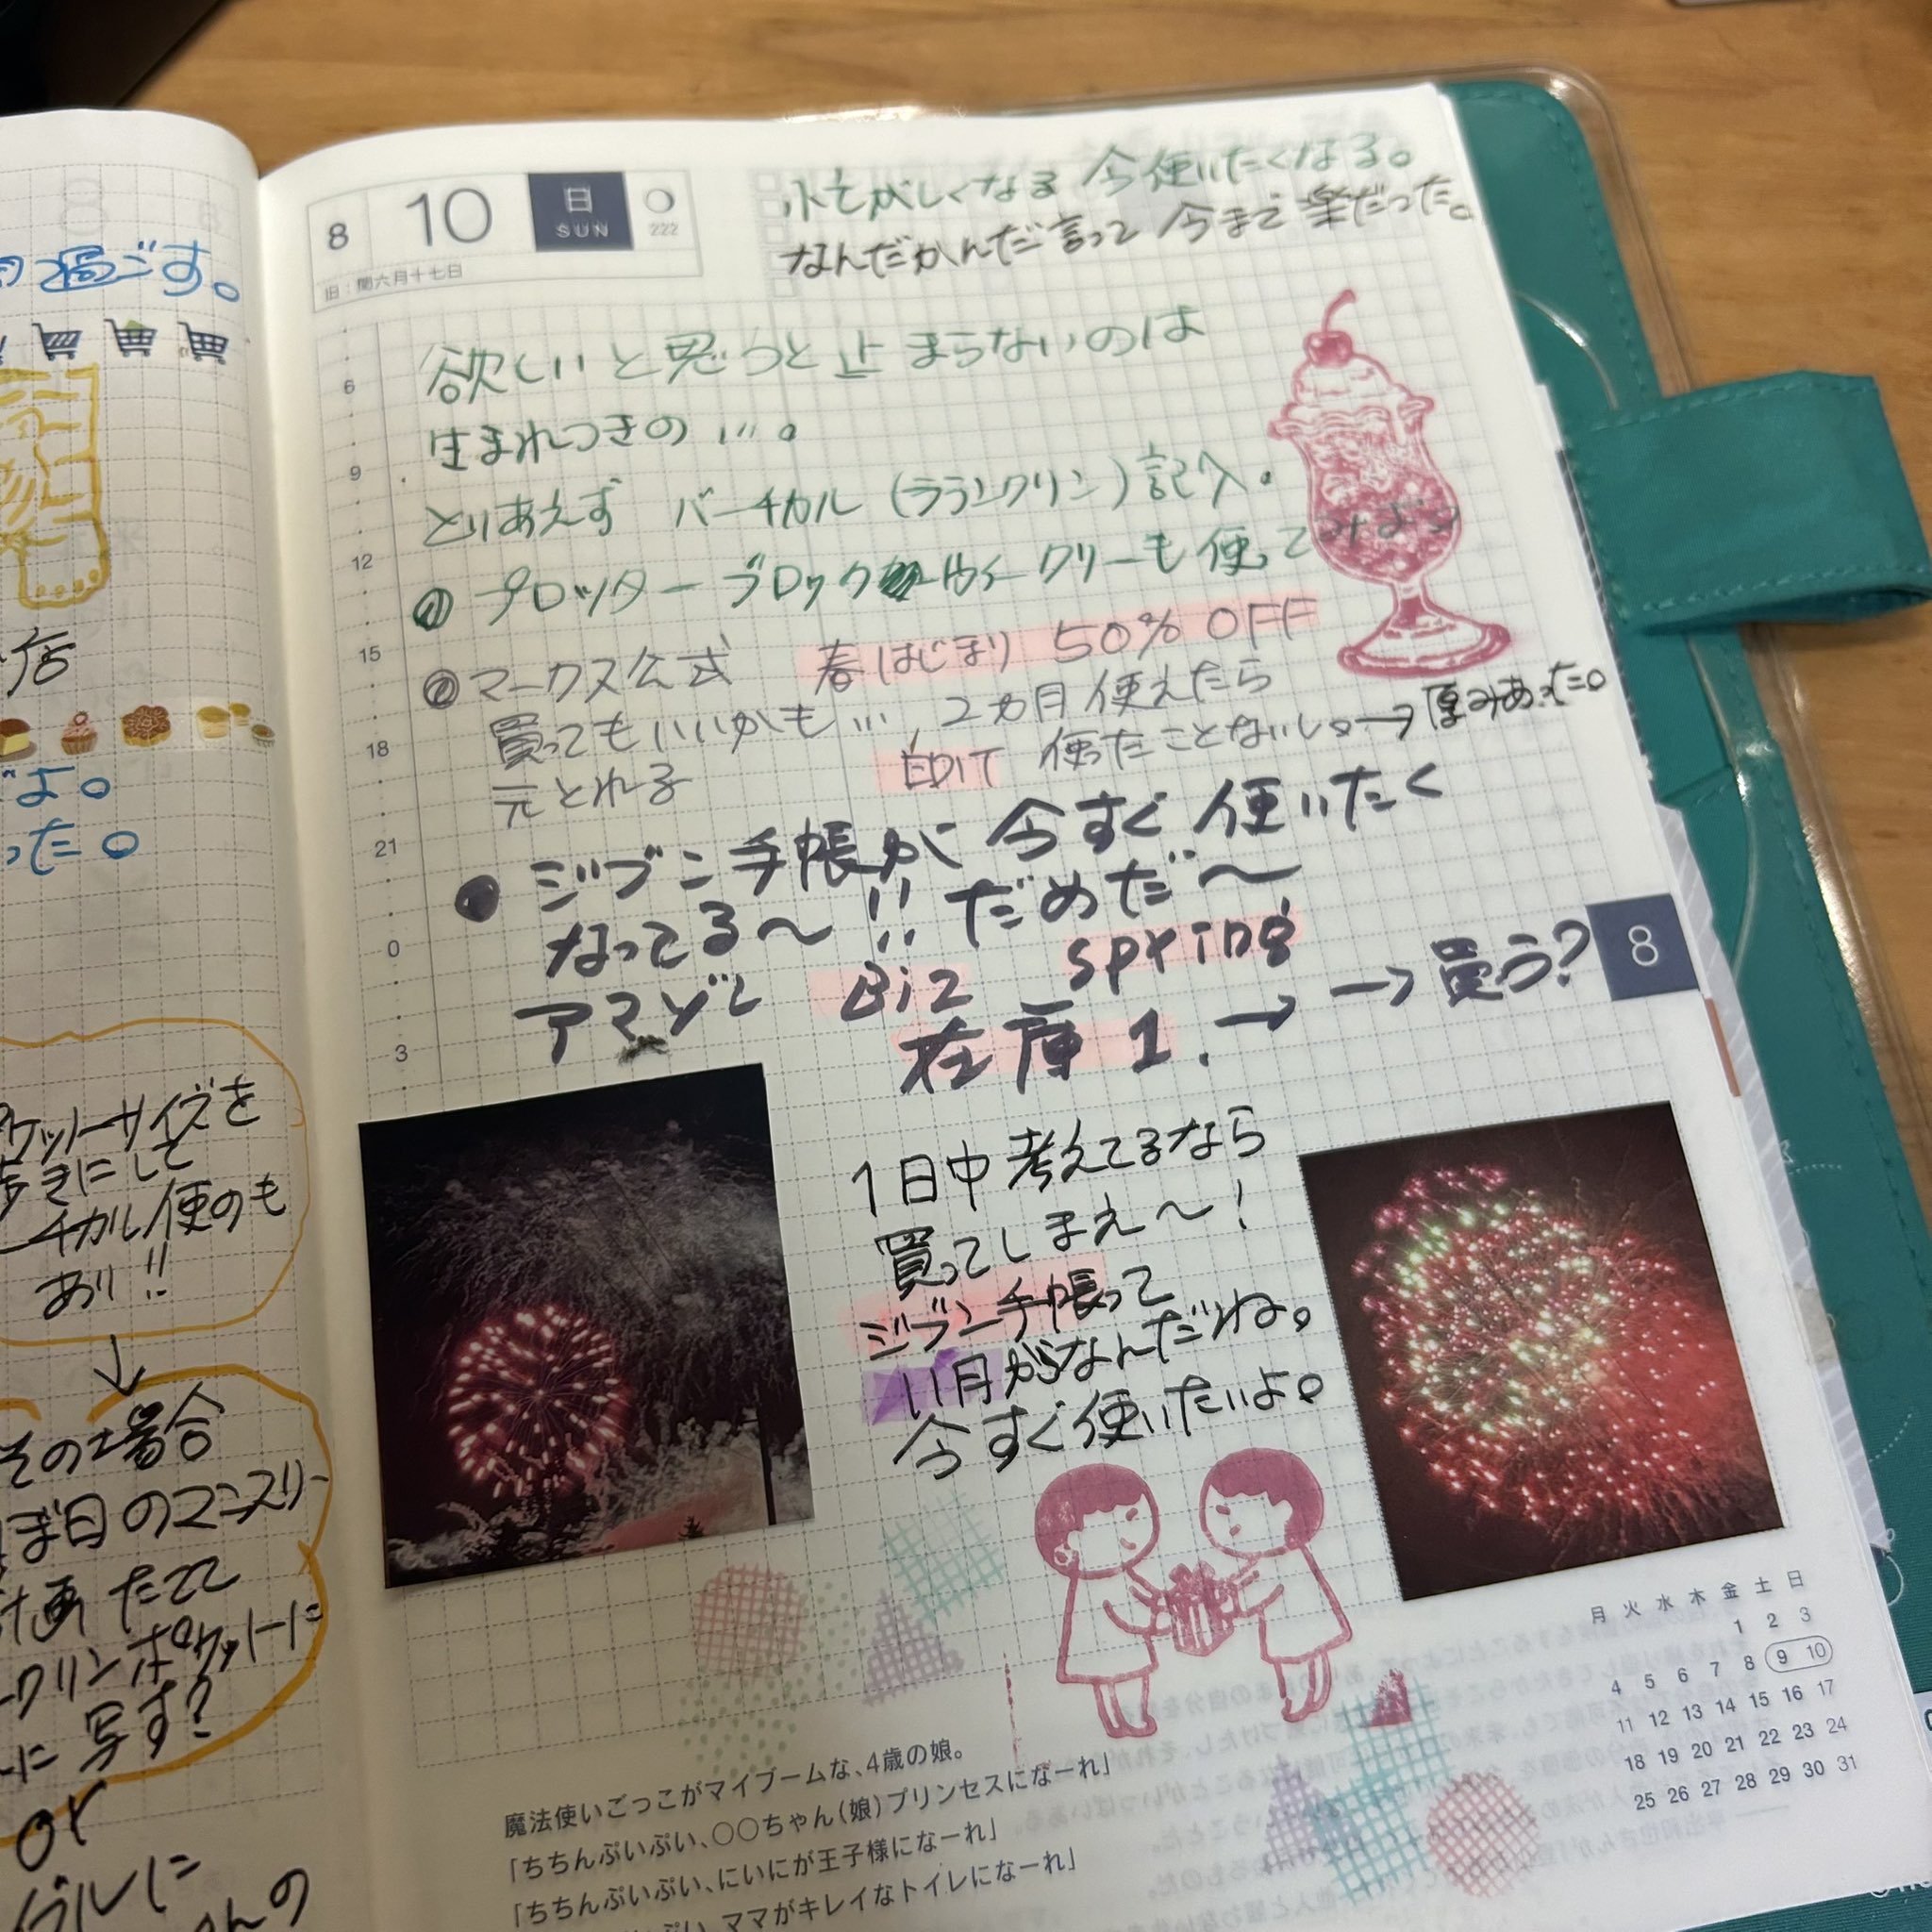 月つ過ごす。
店
よ。
った。
ケットサイズを
歩きにして
チカル使のも
あり!!
その場合
ぼ日のマンスリー
計画たてて
クリンポケットに
に写す?
or
8 10 日 SUN 222
旧:閏六月十七日
忙しくなる 今使いたくなる。
なんだかんだ言って 今まで楽だった。
欲しいと思うと止まらないのは
生まれつきの…。
とりあえず バーチカル(フランクリン)記入。
① プロッター ブロック ウィークリーも使ってみよう
②マークス公式 春はじまり 50% OFF
買ってもいいかも… 2カ月使えたら
元とれる EDiT 使ったことないし。→厚みあった。
● ジブン手帳が 今すぐ使いたく
なってる〜!! だめだ〜
アマゾン Biz spring
在庫1. → → 買う?
1日中考えてるなら
買ってしまえ〜!
ジブン手帳って
11月がなんだね。
今すぐ使いたいよ。
6
9
12
15
18
21
0
3
8
月 火 水 木 金 土 日
1 2 3
4 5 6 7 8 9 10
11 12 13 14 15 16 17
18 19 20 21 22 23 24
25 26 27 28 29 30 31
魔法使いごっこがマイブームな、4歳の娘。
「ちちんぷいぷい、○○ちゃん(娘)プリンセスになーれ」
「ちちんぷいぷい、にいにが王子様になーれ」
ぷい、ママがキレイなトイレになーれ」